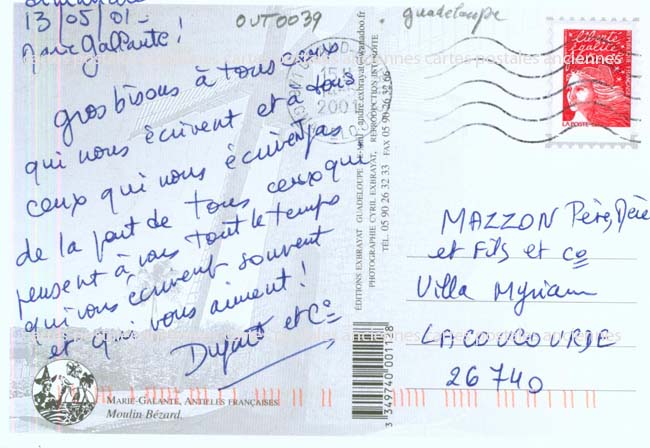 13/05/01-
Marie Galante!
OUT0039
guadeloupe
gros bisous à tous ceux
qui nous écrivent et à tous
ceux qui nous écrivent pas
de la part de tous ceux qui
pensent à vous tout le temps
qui vous écrivent souvent
et qui vous aiment!
Dupuit et Cº
ÉDITIONS EXBRAYAT GUADELOUPE
PHOTOGRAPHIE CYRIL EXBRAYAT, REPRODUCTION INTERDITE
TÉL. 05 90 26 32 33 FAX 05 90 26 32 66
3 349740 001128
liberté
égalité
LA POSTE
2001
MAZZON Père, Mère
et Fils et Cº
Villa Myriam
LACOUCOURDE
26740
MARIE-GALANTE, ANTILLES FRANÇAISES.
Moulin Bézard.
anciennes cartes postales anciennes